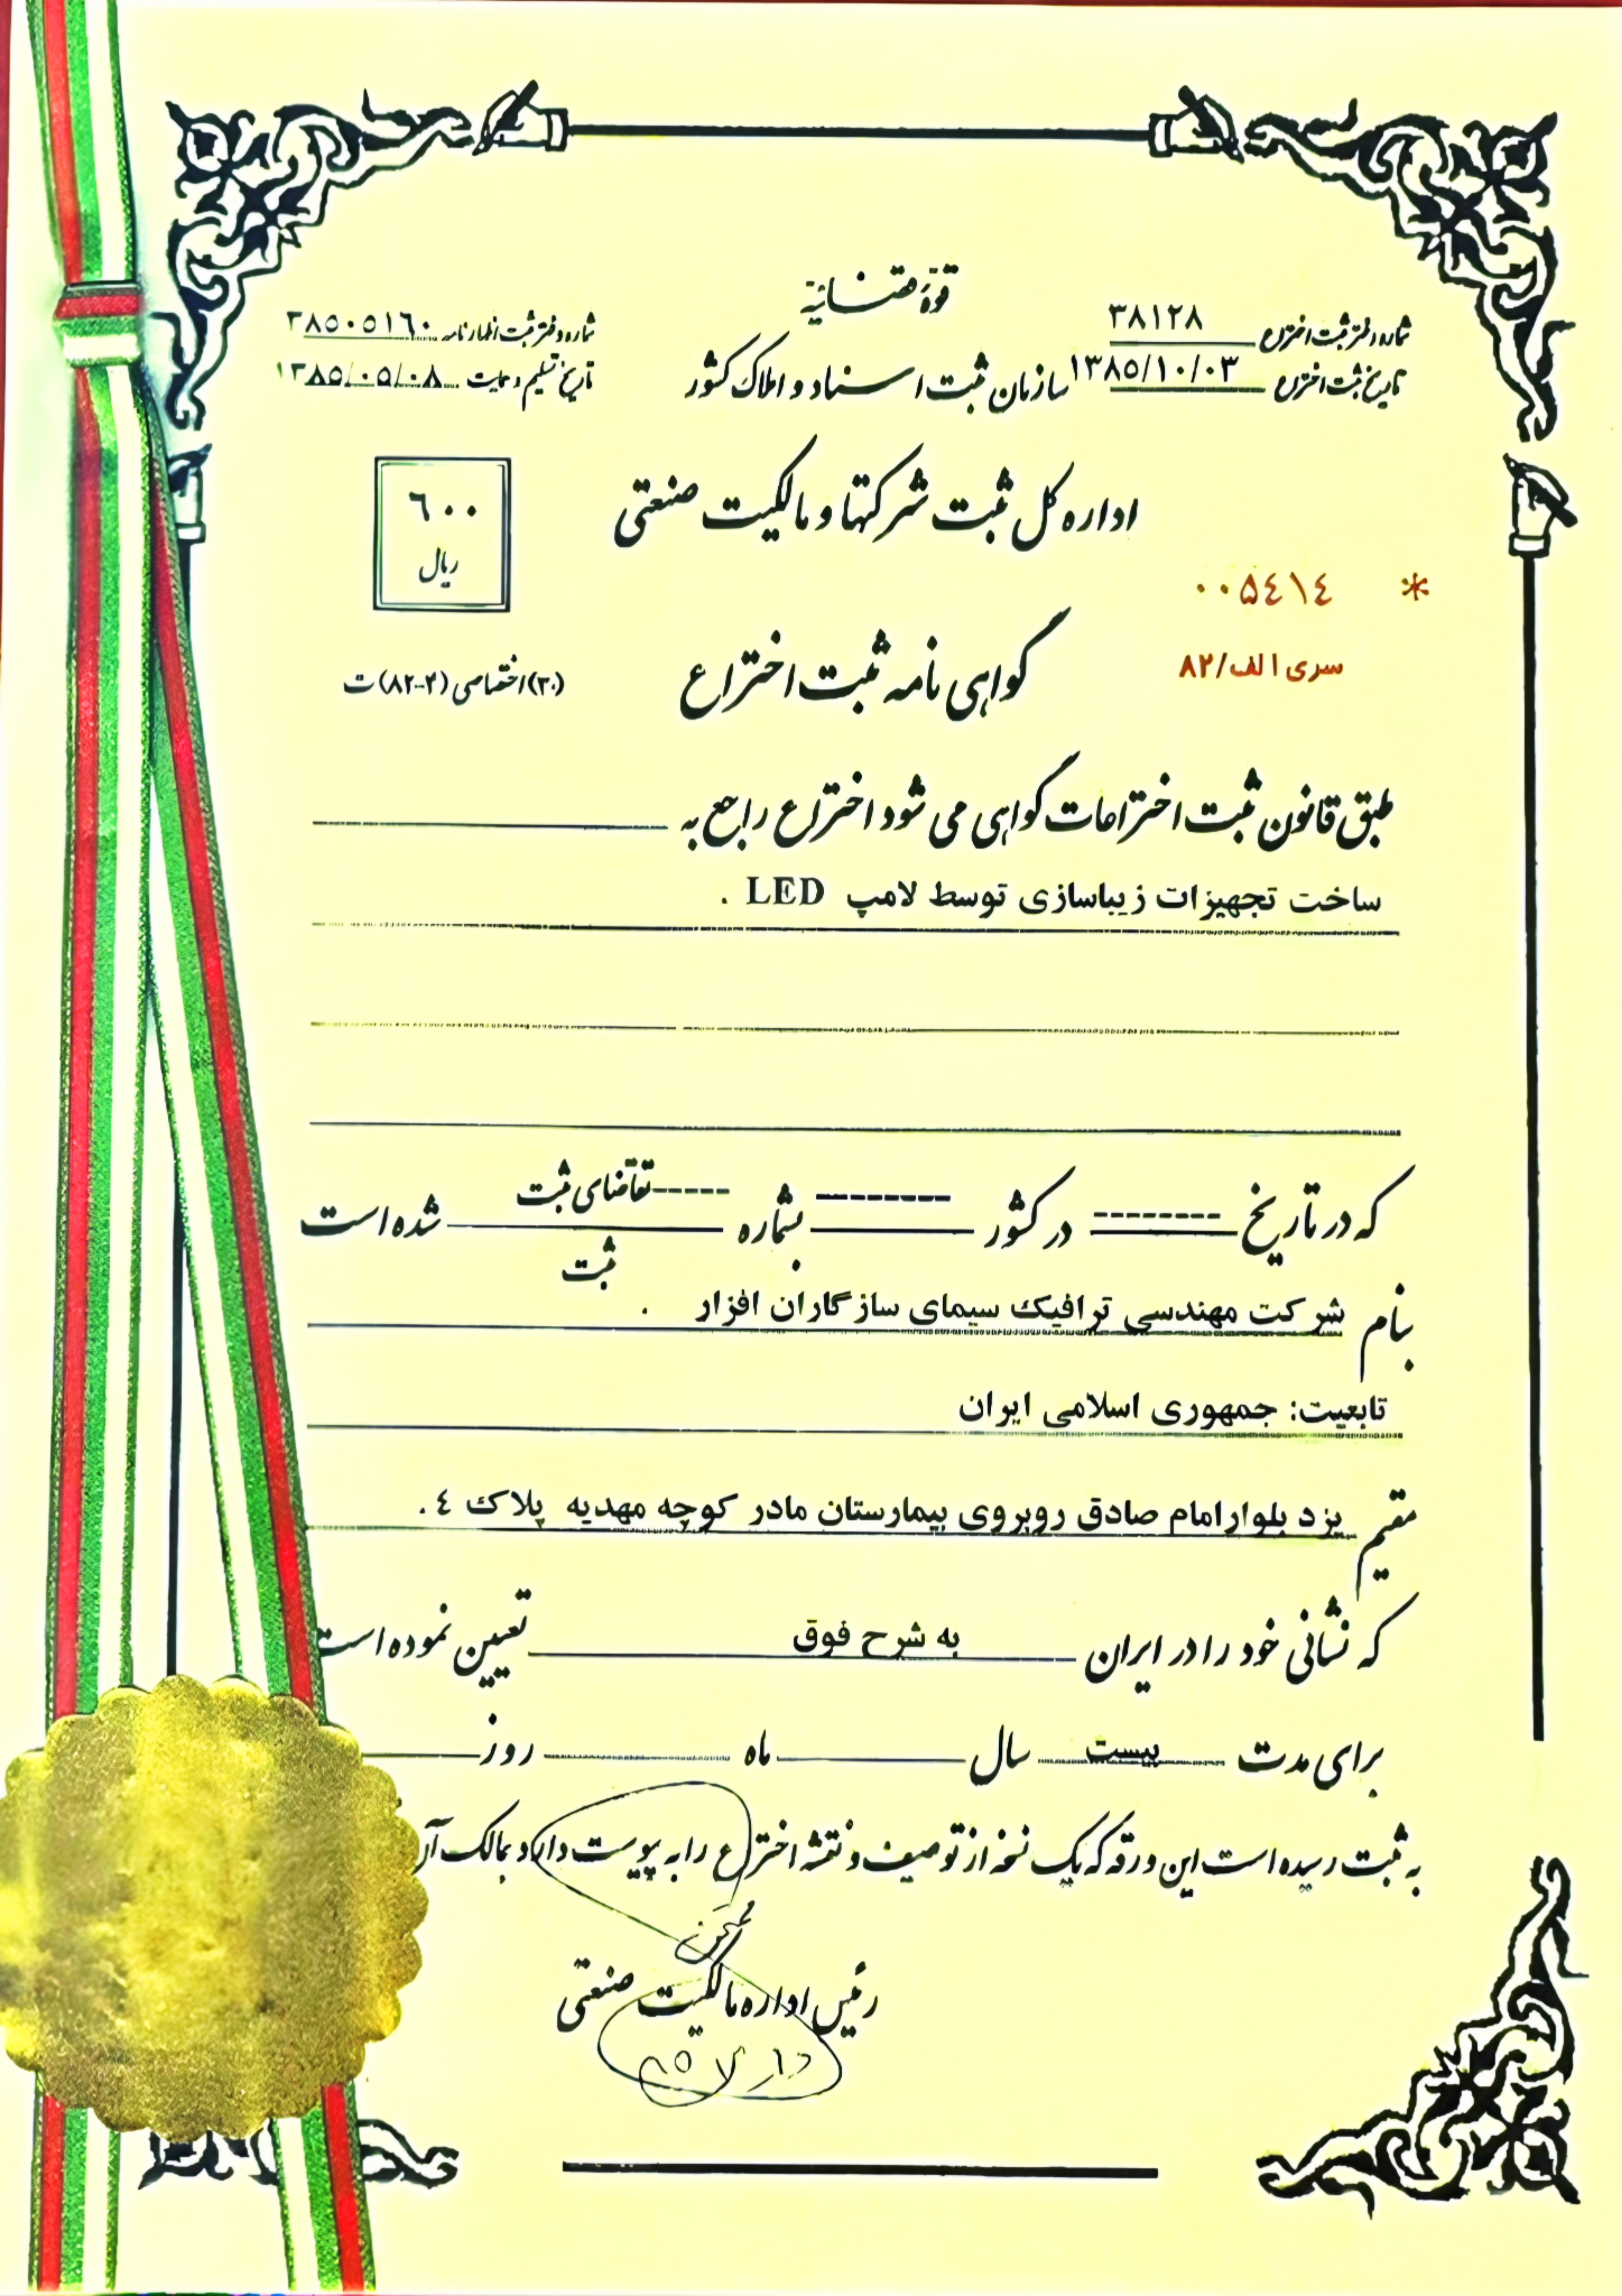 قوۀ قضائیه
شماره دفتر ثبت اختراع ۳۸۱۲۸
شماره دفتر ثبت اظهارنامه ۳۸۵۰۵۱۶۰
سازمان ثبت اسناد و املاک کشور
تاریخ ثبت اختراع ۱۳۸۵/۱۰/۰۳
تاریخ تسلیم و حمایت ۱۳۸۵/۰۵/۰۸
اداره کل ثبت شرکتها و مالکیت صنعتی
۶۰۰
ریال
* ۰۰۵۴۱۴
سری الف/۸۲
گواهی نامه ثبت اختراع
(۳۰) اختصاصی (۲-۸۲) ت
طبق قانون ثبت اختراعات گواهی می شود اختراع راجع به
ساخت تجهیزات زیباسازی توسط لامپ LED .
که در تاریخ -------- در کشور -------- بشماره ----- تقاضای ثبت
ثبت شده است
بنام شرکت مهندسی ترافیک سیمای سازگاران افزار .
تابعیت: جمهوری اسلامی ایران
مقیم یزد بلوار امام صادق روبروی بیمارستان مادر کوچه مهدیه پلاک ٤ .
که نشانی خود را در ایران به شرح فوق تعیین نموده است
برای مدت بیست سال ماه روز
به ثبت رسیده است این ورقه که یک نسخه از توصیف و نقشه اختراع را به پیوست دارد بمالک آن
رئیس اداره مالکیت صنعتی